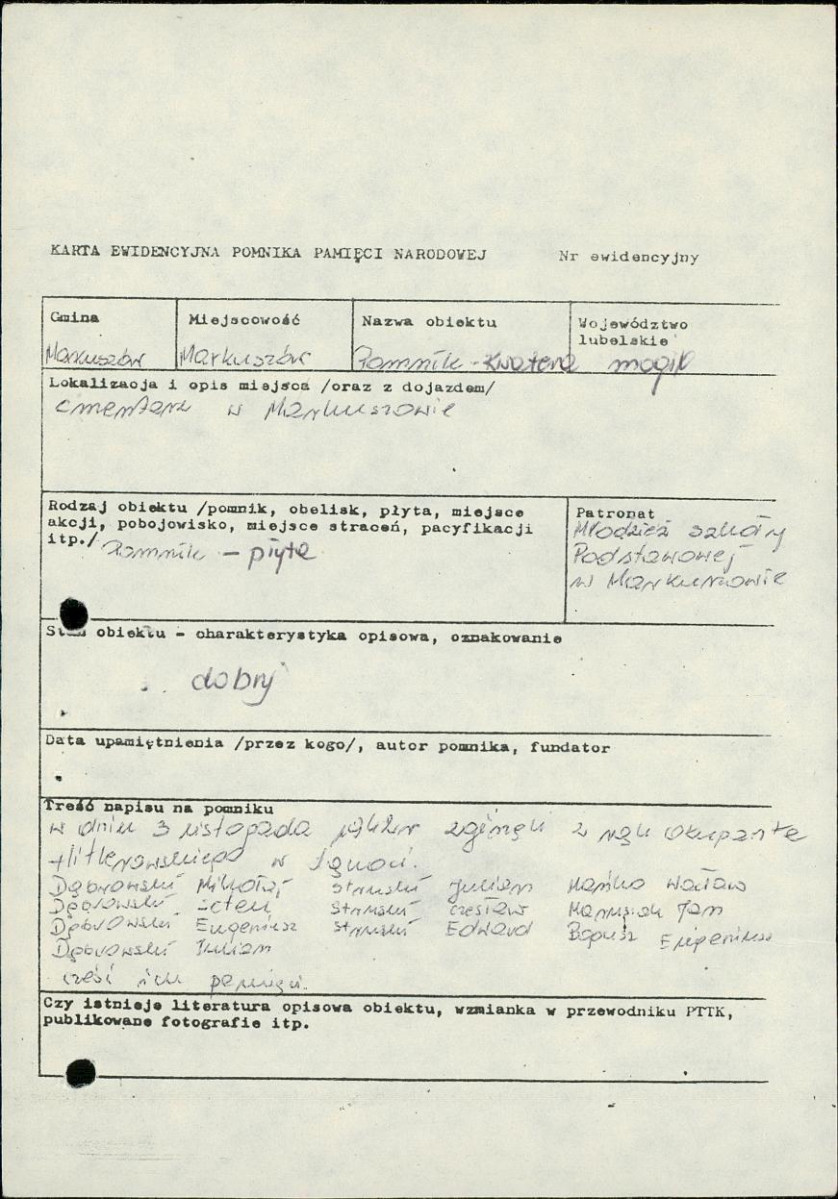 KARTA EWIDENCYJNA POMNIKA PAMIĘCI NARODOWEJ Nr ewidencyjny
Gmina Miejscowość Nazwa obiektu Województwo
lubelskie
Markuszów Markuszów Pomnik - kwatera mogił
Lokalizacja i opis miejsca /oraz z dojazdem/
cmentarz w Markuszowie
Rodzaj obiektu /pomnik, obelisk, płyta, miejsce
akcji, pobojowisko, miejsce straceń, pacyfikacji
itp./ Pomnik - płyta
Patronat
Młodzież szkoły
Podstawowej
w Markuszowie
Stan obiektu - charakterystyka opisowa, oznakowanie
dobry
Data upamiętnienia /przez kogo/, autor pomnika, fundator
Treść napisu na pomniku
w dniu 3 listopada zginęli z rąk okupanta
Hitlerowskiego w
Dąbrowski Mikołaj Struski Julian Mańko Wacław
Dąbrowski Struski Czesław Marusiak Jan
Dąbrowski Eugeniusz Struski Edward Bogusz Eugeniusz
Dąbrowski Julian
cześć ich pamięci.
Czy istnieje literatura opisowa obiektu, wzmianka w przewodniku PTTK,
publikowane fotografie itp.